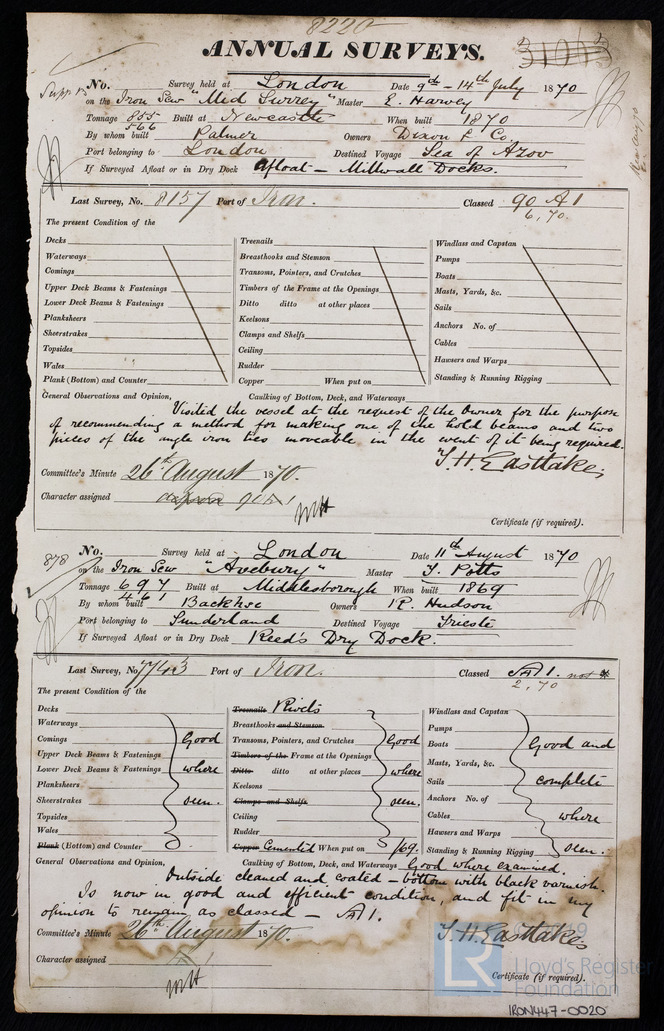 8220
ANNUAL SURVEYS.
31063
No. Survey held at London Date 9th - 14th July 1870
on the Iron Scw "Mid Surrey" Master E. Harvey
Tonnage 855 Built at Newcastle When built 1870
566
By whom built Palmer Owners Dixon & Co
Port belonging to London Destined Voyage Sea of Azov
If Surveyed Afloat or in Dry Dock Afloat - Millwall Docks.
Last Survey, No. 8157 Port of Iron. Classed 90 A 1
6,70.
The present Condition of the
Decks
Waterways
Comings
Upper Deck Beams & Fastenings
Lower Deck Beams & Fastenings
Planksheers
Sheerstrakes
Topsides
Wales
Plank (Bottom) and Counter
Treenails
Breasthooks and Stemson
Transoms, Pointers, and Crutches
Timbers of the Frame at the Openings
Ditto ditto at other places
Keelsons
Clamps and Shelfs
Ceiling
Rudder
Copper When put on
Windlass and Capstan
Pumps
Boats
Masts, Yards, &c.
Sails
Anchors No. of
Cables
Hawsers and Warps
Standing & Running Rigging
General Observations and Opinion, Caulking of Bottom, Deck, and Waterways
Visited the vessel at the request of the Owner for the purpose
of recommending a method for making one of the hold beams and two
pieces of the angle iron ties moveable in the event of it being required.
T. H. Eastlake,
Committee's Minute 26th August 1870.
Character assigned
Certificate (if required).
878
No. Survey held at London Date 11th August 1870
on the Iron Scw "Avebury" Master T. Potts
Tonnage 697 Built at Middlesborough When built 1869
461
By whom built Backhse Owners R. Hudson
Port belonging to Sunderland Destined Voyage Trieste
If Surveyed Afloat or in Dry Dock Reed's Dry Dock.
Last Survey, No 7743 Port of Iron. Classed A 1. not
2,70
The present Condition of the
Decks
Waterways
Comings Good
Upper Deck Beams & Fastenings
Lower Deck Beams & Fastenings where
Planksheers
Sheerstrakes seen.
Topsides
Wales
Plank (Bottom) and Counter
Treenails Rivets
Breasthooks and Stemson
Transoms, Pointers, and Crutches Good
Timbers of the Frame at the Openings
Ditto ditto at other places where
Keelsons
Clamps and Shelfs seen.
Ceiling
Rudder
Copper Cemented When put on /69.
Windlass and Capstan
Pumps
Boats Good and
Masts, Yards, &c.
Sails complete
Anchors No. of
Cables where
Hawsers and Warps
Standing & Running Rigging seen.
General Observations and Opinion, Caulking of Bottom, Deck, and Waterways Good where examined.
Outside cleaned and coated - bottom with black varnish.
Is now in good and efficient condition, and fit in my
opinion to remain as classed - A 1.
Committee's Minute 26th August 1870.
T. H. Eastlake,
Character assigned
Certificate (if required).
LR
Lloyd's Register
Foundation
IRON447-0020